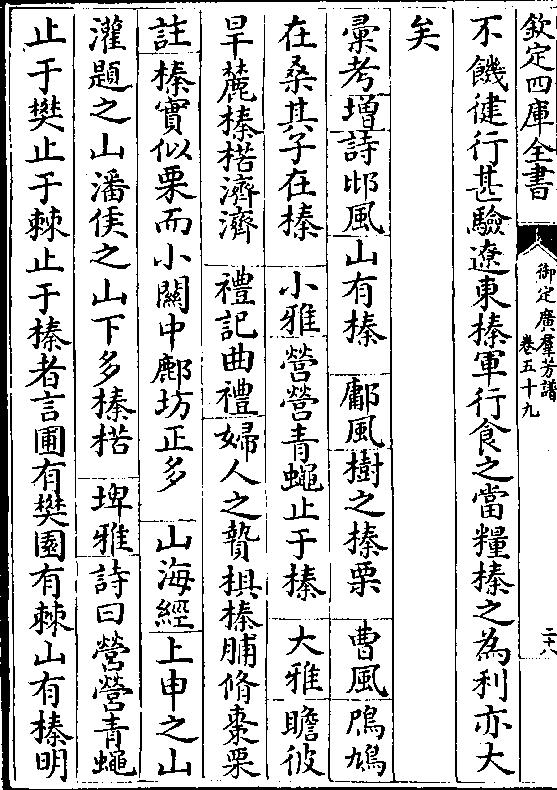 欽定四庫全書
御定廣羣芳譜
卷五十九
二十八
不饑健行甚驗遼東榛軍行食之當糧榛之為利亦大
矣
彚考增詩邶風山有榛 鄘風樹之榛栗 曹風鳲鳩
在桑其子在榛 小雅營營青蠅止于榛 大雅瞻彼
旱麓榛楛濟濟 禮記曲禮婦人之贄椇榛脯脩棗栗
註榛實似栗而小關中鄜坊正多 山海經上申之山
灌題之山潘侯之山下多榛楛 埤雅詩曰營營青蠅
止于樊止于棘止于榛者言圃有樊園有棘山有榛明